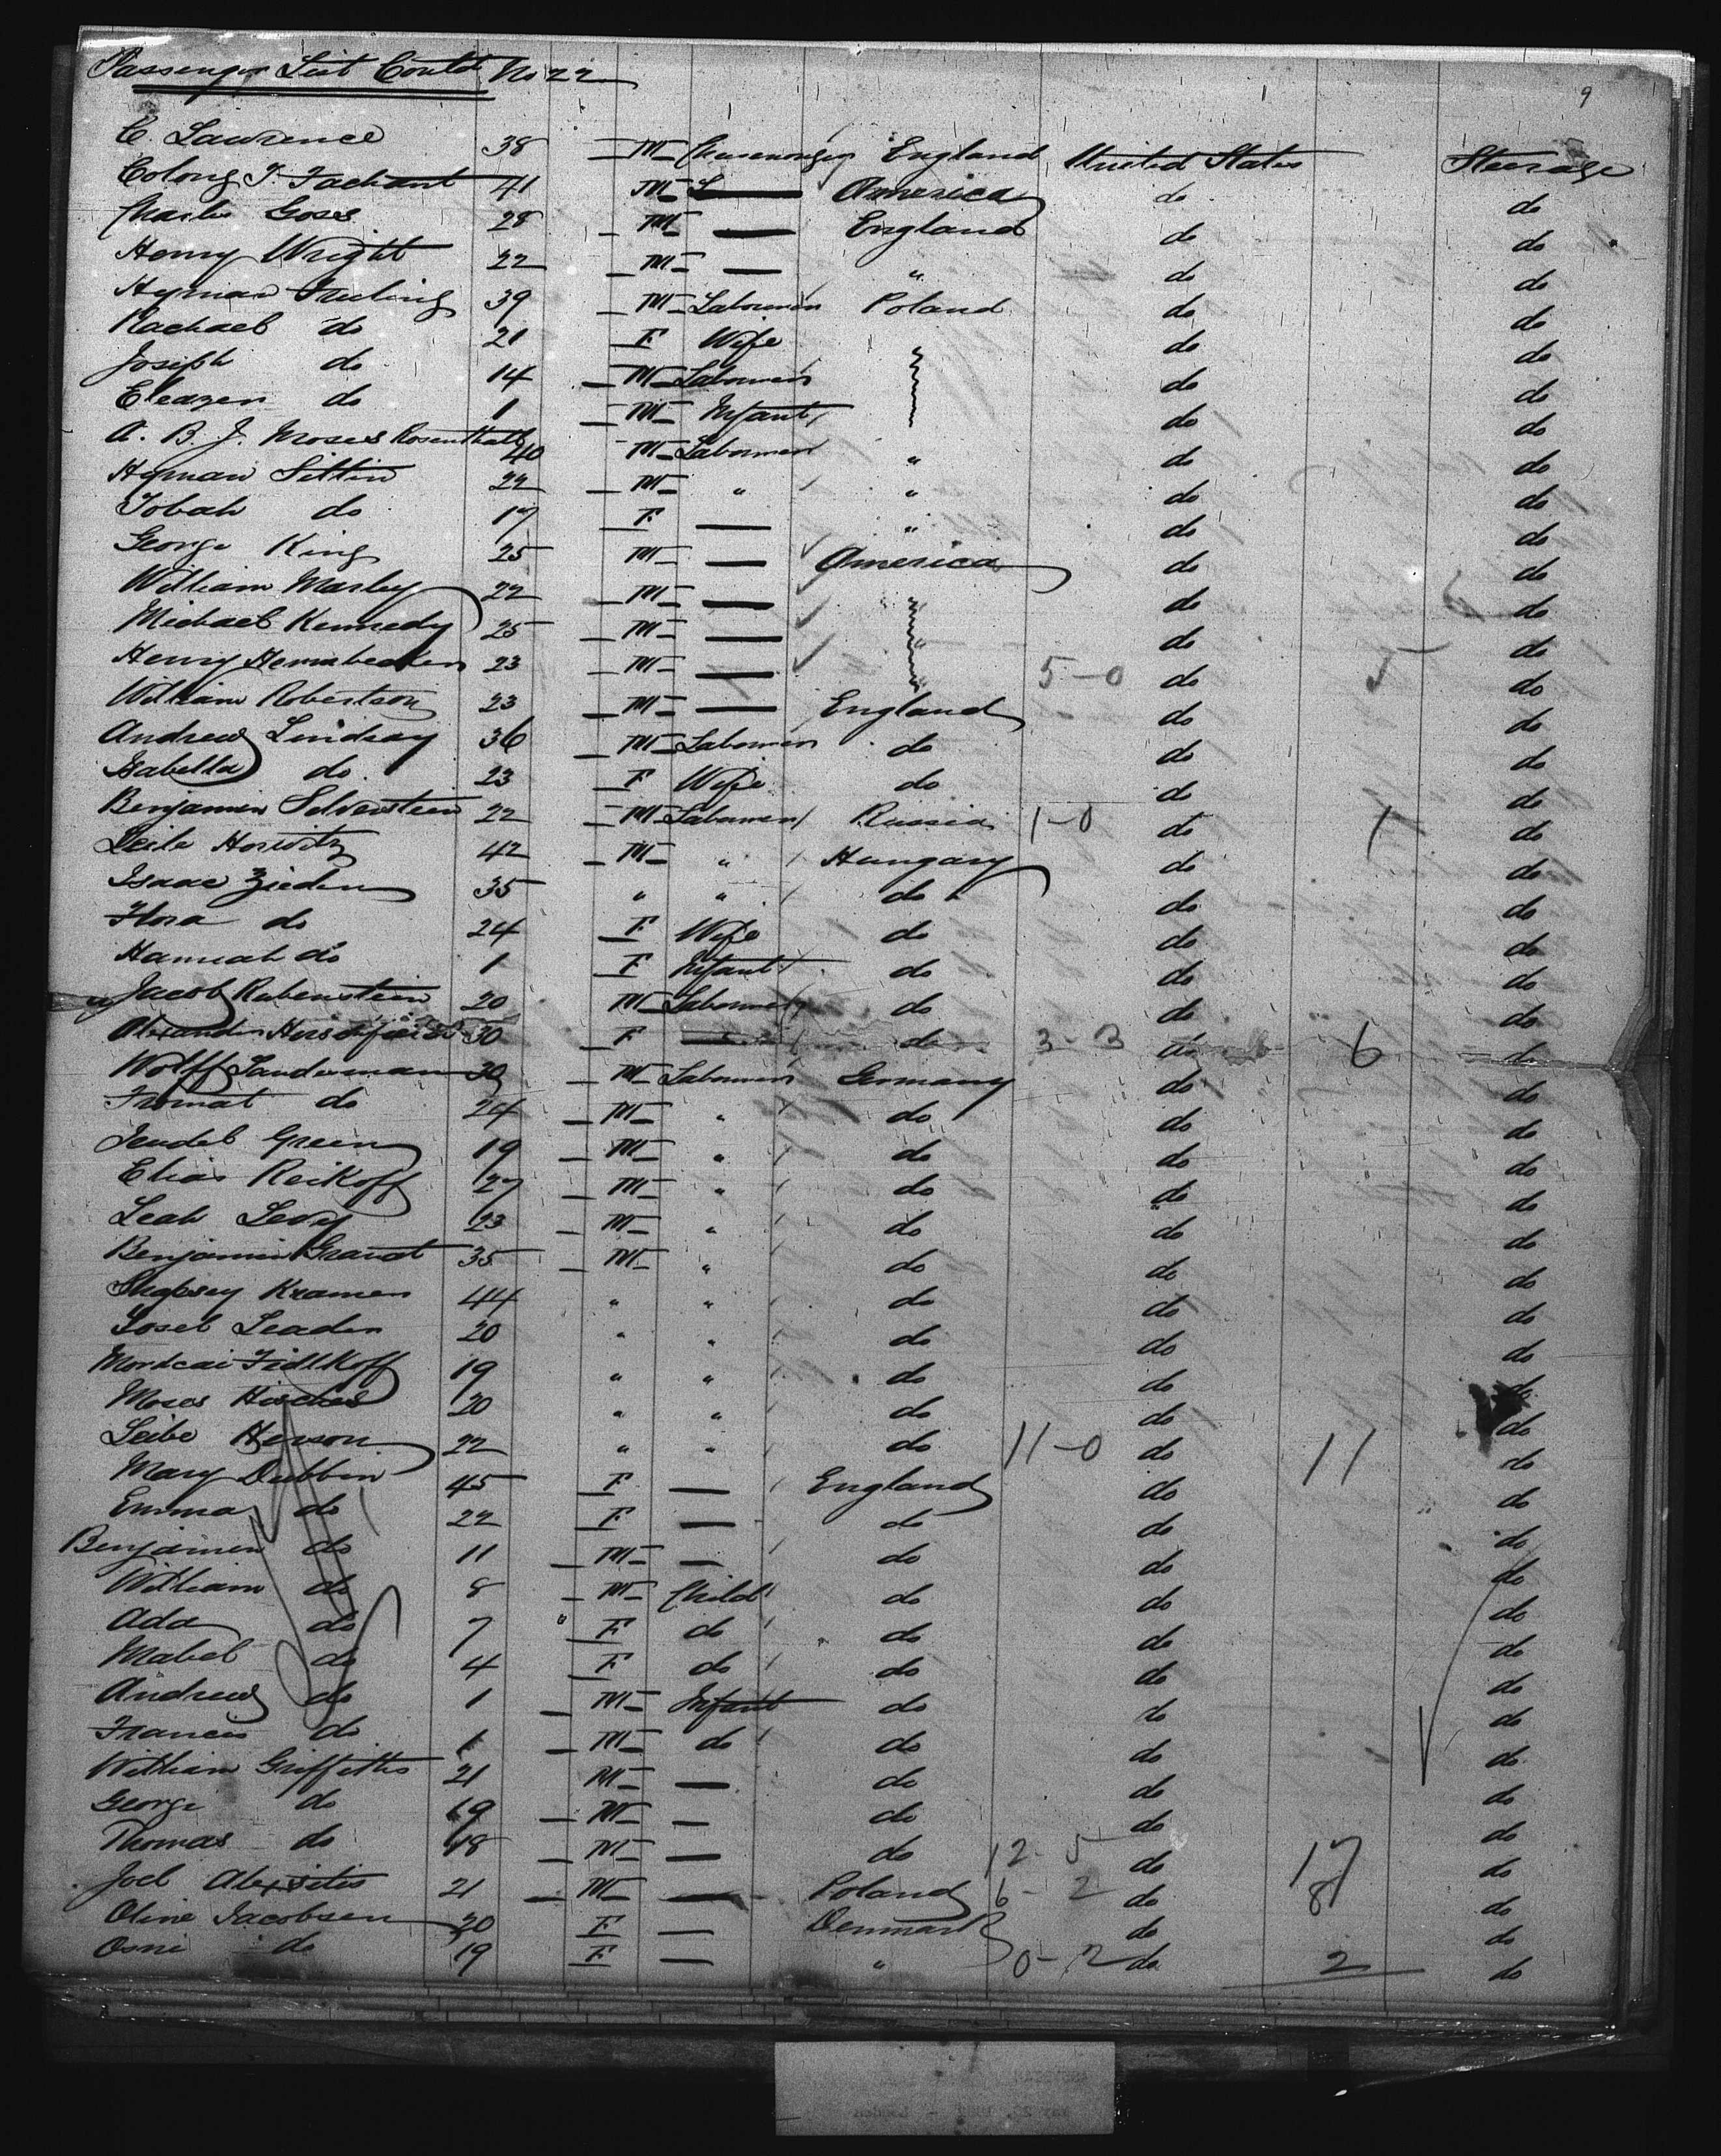 Passenger List Contd No 22
9
C. Lawrence 38 M England United States Steerage
Colong T. Tachant 41 M America do do
Charles Goss 28 M England do do
Henry Wright 22 M " do do
Hyman Freeling 39 M Labourer Poland do do
Rachael do 21 F Wife do do
Joseph do 14 M Labourer do do
Eleazer do 1 M Infant do do
A. B. J. Moses Rosenthall 40 M Labourer " do do
Hyman Sittin 22 M " " do do
Tobah do 17 F " do do
George King 25 M America do do
William Marley 22 M " do do
Michael Kennedy 25 M " do do
Henry 23 M " 5-0 do 5 do
William Robertson 23 M England do do
Andrew Lindsay 36 M Labourer do do do
Isabella do 23 F Wife do do do
Benjamin Silverstein 22 M Labourer Russia 1-0 do 1 do
Leile Horwitz 42 M " Hungary do do
Isaac Zieden 35 " " do do do
Flora do 24 F Wife do do do
Hannah do 1 F Infant do do do
Jacob Rubenstein 20 M Labourer do do do
Alexander 30 F do 3-3 do 6 do
Wolff Sanderman 30 M Labourer Germany do do
Fromat do 24 M " do do do
Jeudel Green 19 M " do do do
Elias Reikoff 27 M " do do do
Leah Levy 23 M " do do do
Benjamin Brandt 35 M " do do do
Shapsey Kramer 44 " " do do do
Yosel Leader 20 " " do do do
Mordcai Fidlkoff 19 " " do do do
Moses 20 " " do do do
Leibe Herson 22 " " do 11-0 do 11 do
Mary Dubbin 45 F England do do
Emma do 22 F do do do
Benjamin do 11 M do do do
William do 8 M Child do do do
Ada do 7 " F do do do do
Mabel do 4 F do do do do
Andrew do 1 M Infant do do do
Francis do 1 M do do do do
William Griffiths 21 M do do do
George do 19 M do do do
Thomas do 18 M do 12-5 do 17 do
Joel 21 M Poland 6-2 do 8 do
Oline Jacobsen 20 F Denmark do do
Osni do 19 F " 0-2 do 2 do